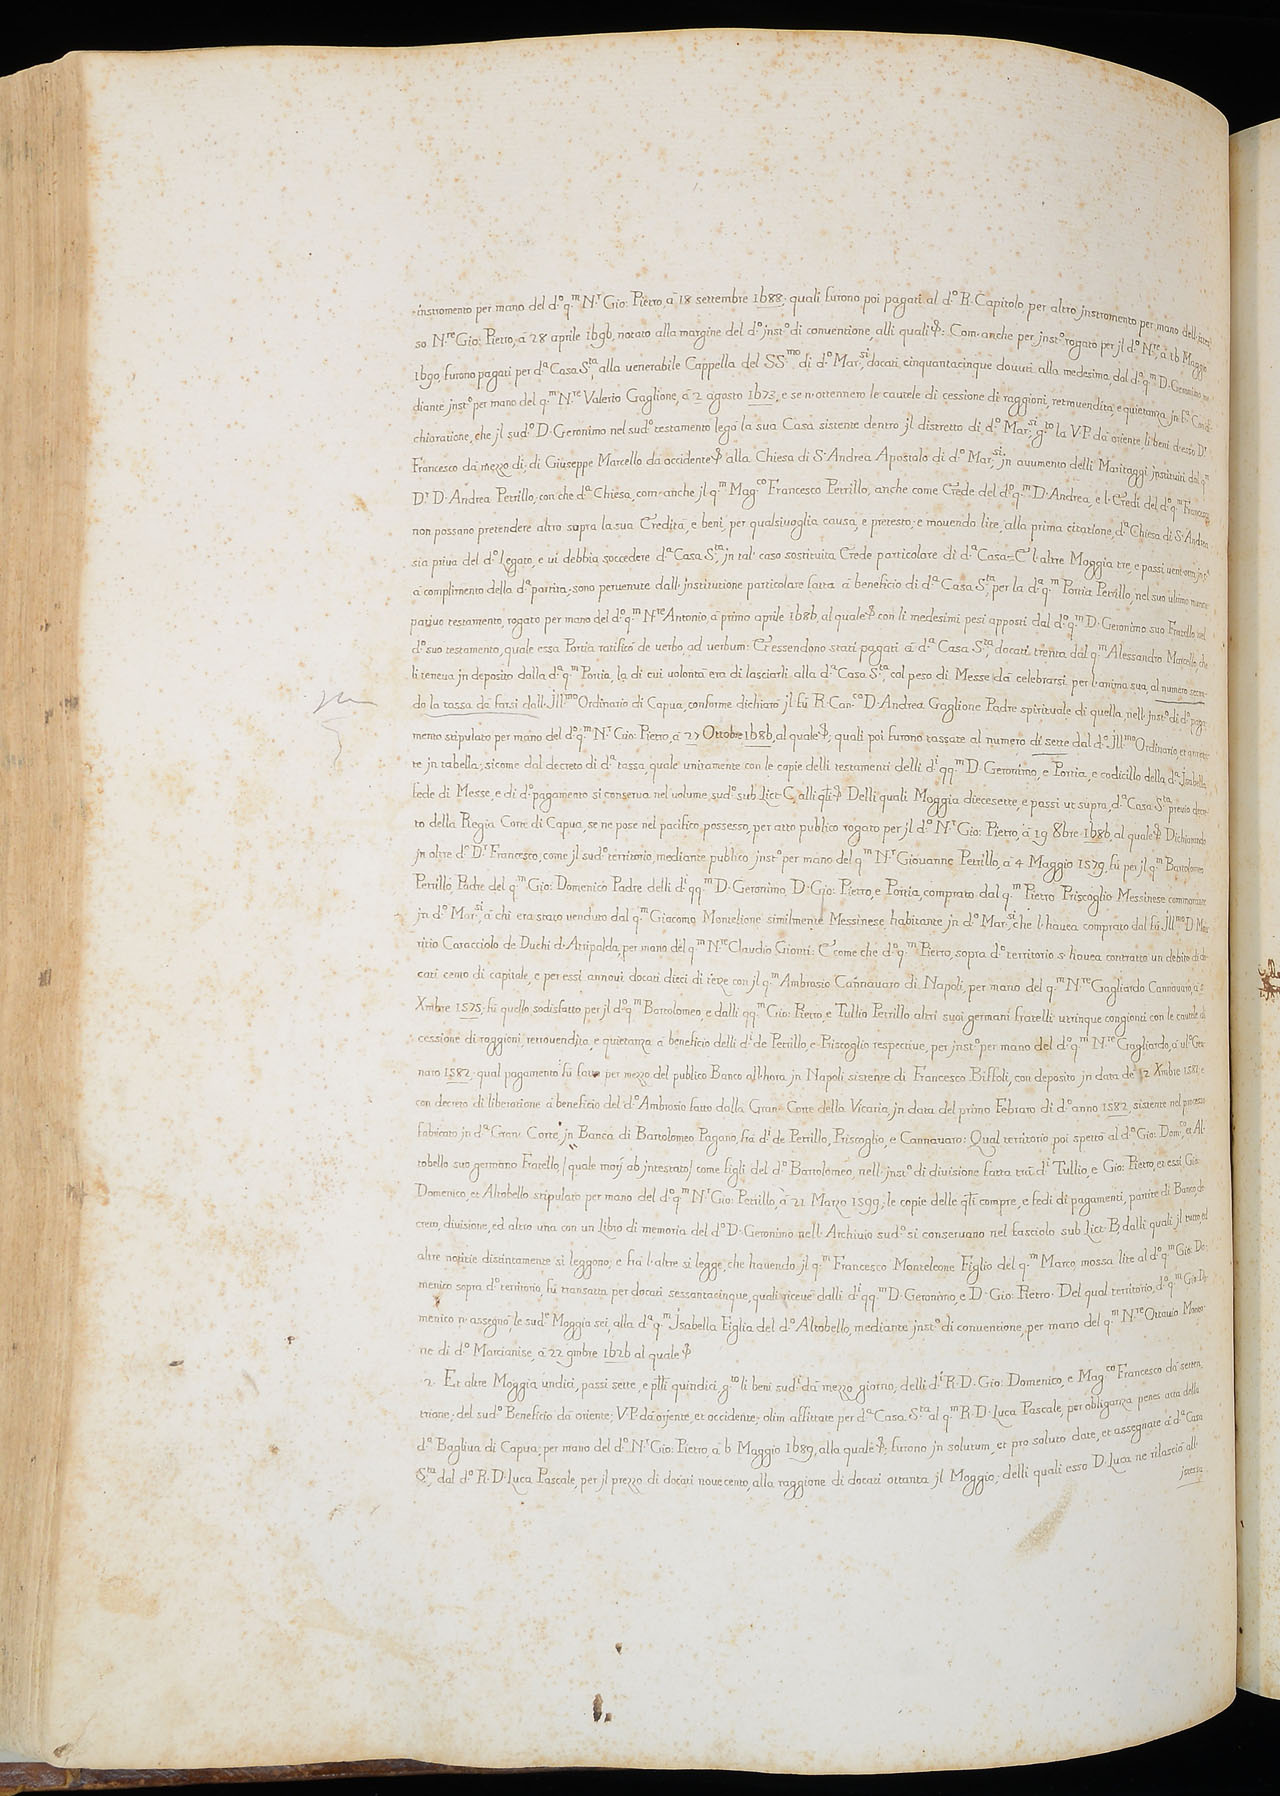 instromento per mano del d.º q.m N.r Gio: Pietro, à 18 settembre 1688; quali furono poi pagati al d.º R. Capitolo, per altro jnstromento per mano dell'istes
so N.re Gio: Pietro, à 28 aprile 1696, notato alla margine del d.º jnst.º di conuentione, alli quali &: Com'anche per jnst.º rogato per jl d.º N.re, à 16 Maggio
1690 furono pagati per d.a Casa S.ta, alla uenerabile Cappella del SS.mo di d.º Mar.si, docati cinquantacinque douuti alla medesima dal d.º q.m D. Geronimo me
diante jnst.º per mano del q.m N.re Valerio Gaglione, à 2 agosto 1673, e se n'ottennero le cautele di cessione di raggioni, retrouendita e quietanza jn f.a Con di
chiaratione, che jl sud.º D. Geronimo nel sud.º testamento legò la sua Casa sistente dentro jl distretto di d.º Mar.si, g.to la V.P. da oriente, li beni d'esso D.r
Francesco da mezzo dì, di Giuseppe Marcello da occidente & alla Chiesa di S. Andrea Apostolo di d.º Mar.si, jn auumento delli Maritaggi jnstituiti dal q.m
D.r D. Andrea Petrillo, con che d.a Chiesa, com'anche jl q.m Mag.co Francesco Petrillo, anche come Erede del d.º q.m D. Andrea, e l'Eredi del d.º q.m Francesco
non possano pretendere altro sopra la sua Eredità, e beni, per qualsiuoglia causa, e pretesto; e mouendo lite, alla prima citatione, d.a Chiesa di S. Andrea
sia priua del d.º Legato, e ui debbia soccedere d.a Casa S.ta, jn tal' caso sostituita Erede particolare di d.a Casa. E l'altre Moggia tre, e passi uent'otto
a complimento della d.a partita, sono peruenute dall'jnstitutione particolare fatta à beneficio di d.a Casa S.ta, per la d.a q.m Portia Petrillo, nel suo ultimo nuncu
patiuo testamento, rogato per mano del d.º q.m N.re Antonio, à primo aprile 1686, al quale & con li medesimi pesi apposti dal d.º q.m D. Geronimo suo Fratello nel
d.º suo testamento, quale essa Portia ratificò de verbo, ad uerbum: Et essendono stati pagati à d.a Casa S.ta, docati trenta dal q.m Alessandro Marcello, che
li teneua jn deposito dalla d.a q.m Portia, la di cui uolontà era di lasciarli alla d.a Casa S.ta, col peso di Messe da celebrarsi per l'anima sua, al numero secon
do la tassa da farsi dall'Jll.mo Ordinario di Capua, conforme dichiarò jl fù R. Can.co D. Andrea Gaglione Padre spirituale di quella, nell'jnst.º di d.º paga
mento stipulato per mano del d.º q.m N.r Gio: Pietro, à 27 Ottobre 1686, al quale &; quali poi furono tassate al numero di sette dal d.º Jll.mo Ordinario, et annota
te jn tabella; sicome dal decreto di d.a tassa, quale unitamente con le copie delli testamenti delli d.i qq.m D. Geronimo, e Portia, e codicillo della d.a Jsabella,
fede di Messe, e di d.º pagamento si conserua nel uolume sud.º sub Lict. C, alli q.li & Delli quali Moggia diecesette, e passi ut supra, d.a Casa S.ta preuio decre
to della Regia Corte di Capua, se ne pose nel pacifico possesso, per atto publico rogato per jl d.º N.r Gio: Pietro, à 19 8bre 1686, al quale & Dichiarando
jn oltre d.º D.r Francesco, come jl sud.º territorio, mediante publico jnst.º per mano del q.m N.r Giouanne Petrillo, à 4 Maggio 1579, fù per jl q.m Bartolomeo
Petrillo, Padre del q.m Gio: Domenico Padre delli d.i qq.m D. Geronimo, D. Gio: Pietro, e Portia, comprato dal q.m Pietro Priscoglio Messinese commorante
jn d.º Mar.si, à chi era stato uenduto dal q.m Giacomo Monteleone similmente Messinese habitante jn d.º Mar.si, che l'hauea comprato dal fù Jll.mo D. Mau
ritio Caracciolo de Duchi d'Atripalda, per mano del q.m N.re Claudio Gionti: E come che d.º q.m Pietro, sopra d.º territorio s'hauea contratto un debito di do
cati cento di capitale, e per essi annoui docati dieci di terze con jl q.m Ambrosio Cannauaro di Napoli, per mano del q.m N.re Gagliardo Cannauaro, à 5
Xmbre 1575; fù quello sodisfatto per jl d.º q.m Bartolomeo, e dalli qq.m Gio: Pietro, e Tullio Petrillo altri suoi germani fratelli utrinque congionti con le cautele di
cessione di raggioni, retrouendita, e quietanza à beneficio delli d.i de Petrillo, e Priscoglio respectiue, per jnst.º per mano del d.º q.m N.re Gagliardo, à ul.º Gen
naro 1582; qual pagamento fù fatto per mezzo del publico Banco all'hora jn Napoli sistente di Francesco Biffoli, con deposito jn data de 12 Xmbre 1581, e
con decreto di liberatione à beneficio del d.º Ambrosio fatto dalla Gran' Corte della Vicaria, jn data del primo Febraro di d.º anno 1582, sistente nel processo
fabricato jn d.a Gran' Corte, jn Banca di Bartolomeo Pagano, frà d.i de Petrillo, Priscoglio, e Cannauaro: Qual territorio poi spettò al d.º Gio: Dom.co, e Al
tobello suo germano Fratello, / quale morj ab jntestato / come figli del d.º Bartolomeo, nell'jnst.º di diuisione fatta trà d.i Tullio, e Gio: Pietro, et essi Gio:
Domenico, et Altobello stipulato per mano del d.º q.m N.r Gio: Petrillo, à 21 Marzo 1599; le copie delle q.li compre, e fedi di pagamenti, partite di Banco, de
creto, diuisione, ed altro una con un Libro di memoria del d.º D. Geronimo nell'Archiuio sud.º si conseruano nel fasciolo sub Lict. B, dalli quali jl tutto, ed
altre notitie distintamente si leggono; e frà l'altre si legge, che hauendo jl q.m Francesco Monteleone Figlio del q.m Marco, mossa lite al d.º q.m Gio: Do:
menico sopra d.º territorio, fù transatta per docati sessantacinque, quali riceuè dalli d.i qq.m D. Geronimo, e D. Gio: Pietro. Del qual territorio, d.º q.m Gio: Do
menico n'assegnò, le sud.e Moggia sei, alla d.a q.m Jsabella Figlia del d.º Altobello, mediante jnst.º di conuentione, per mano del q.m N.re Ottauio
ne di d.º Marcianise, à 22 9mbre 1626 al quale &
2. Et altre Moggia undici, passi sette, e p.lli quindici, g.to li beni sud.i da mezzo giorno, delli d.i R. D. Gio: Domenico, e Mag.co Francesco da setten,
trione; del sud.º Beneficio da oriente; V.P. da orjente, et occidente; olim affittate per d.a Casa S.ta al q.m R. D. Luca Pascale, per obliganza penes acta della
d.a Bagliua di Capua, per mano del d.º N.r Gio: Pietro, à 6 Maggio 1689, alla quale &; furono jn solutum, et pro soluto date, et assegnate à d.a Casa
S.ta, dal d.º R. D. Luca Pascale, per jl prezzo di docati nouecento, alla raggione di docati ottanta jl Moggio; delli quali esso D. Luca ne rilasciò all'
jstessa